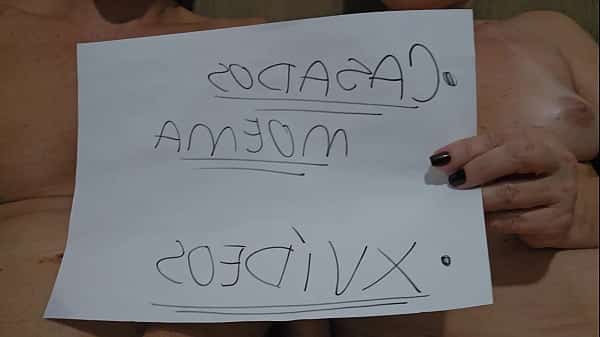 • CASADOS
MOEMA
• XVÍDEOS